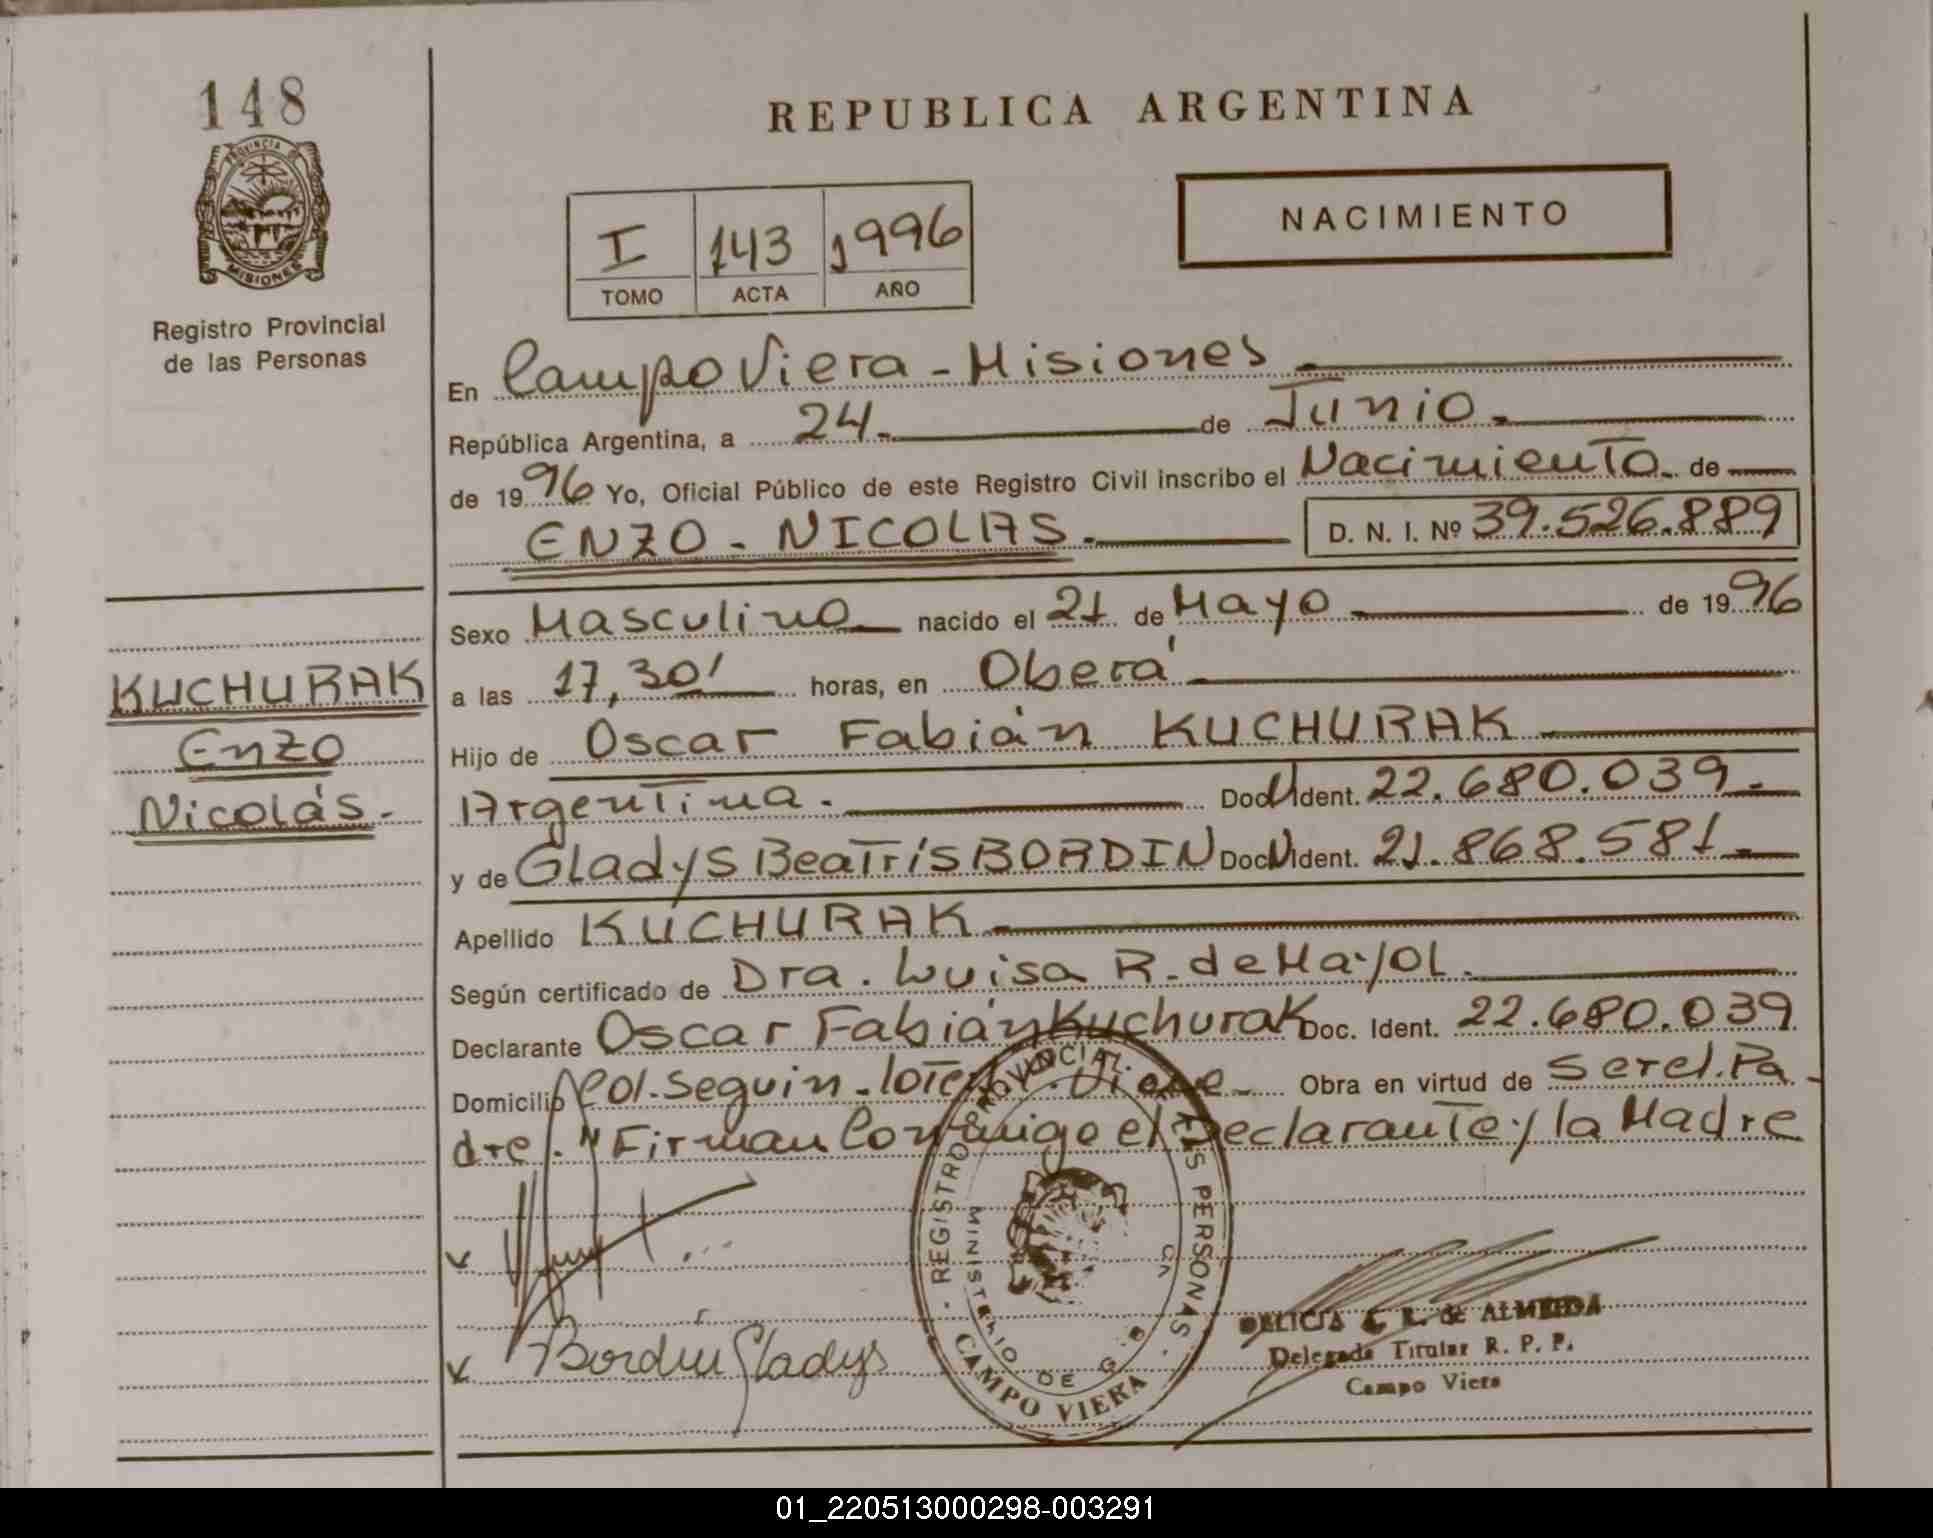 148
PROVINCIA DE
MISIONES
Registro Provincial
de las Personas
REPUBLICA ARGENTINA
NACIMIENTO
I 143 1996
TOMO ACTA AÑO
En Campo Viera - Misiones
República Argentina, a 24. de Junio.
de 1996 Yo, Oficial Público de este Registro Civil inscribo el Nacimiento de
ENZO - NICOLAS. D. N. I. Nº 39.526.889
Sexo Masculino nacido el 21 de Mayo de 1996
a las 17,30' horas, en Oberá
Hijo de Oscar Fabián KUCHURAK
Argentina. Doc. Ident. 22.680.039.
y de Gladys Beatrís BORDIN Doc. Ident. 21.868.581.
Apellido KUCHURAK
Según certificado de Dra. Luisa R. de Mayol.
Declarante Oscar Fabián Kuchurak Doc. Ident. 22.680.039
Domicilio Col. Seguin - lote Obra en virtud de ser el Pa-
dre. "Firman Conmigo el Declarante y la Madre
KUCHURAK
Enzo
Nicolás.-
REGISTRO PROVINCIAL DE LAS PERSONAS
MINISTERIO DE G.
CAMPO VIERA
Bordin Gladys
DELICIA R. de ALMEIDA
Delegada Titular R. P. P.
Campo Viera
01_220513000298-003291